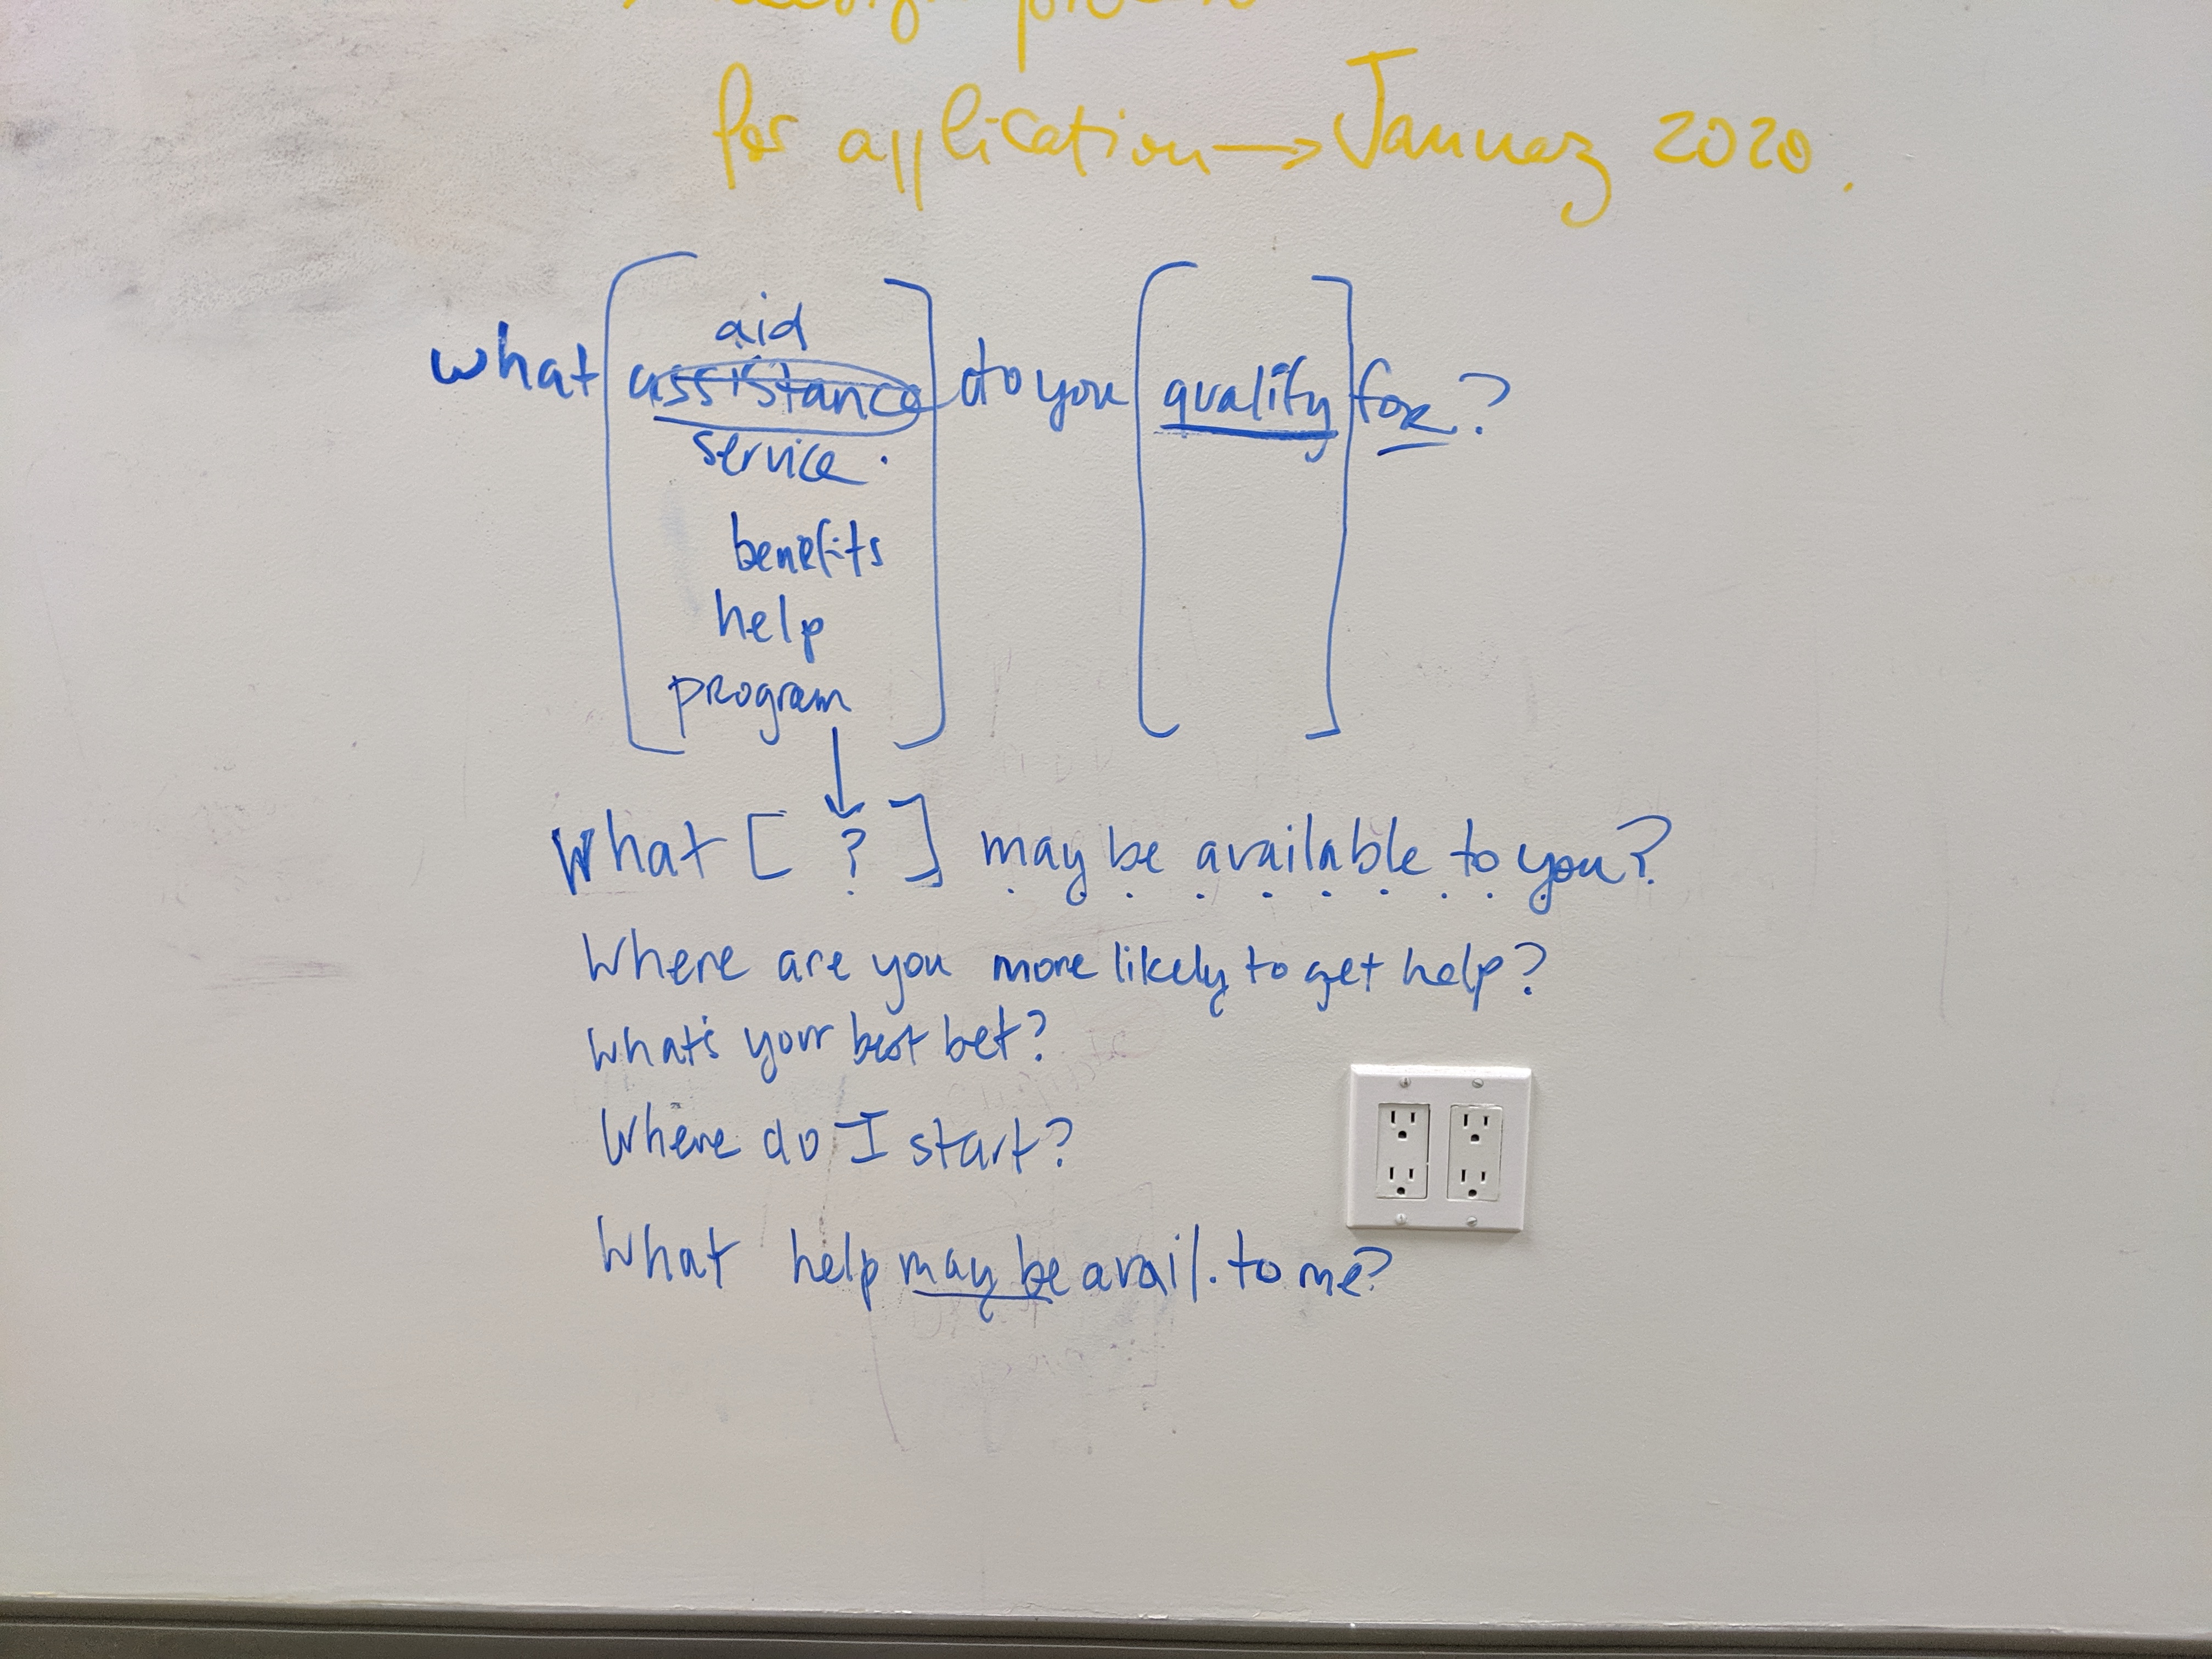 for application → January 2020.
aid
what [assistance] do you [qualify] for?
service.
benefits
help
program
↓
What [ ? ] may be available to you?
Where are you more likely to get help?
What's your best bet?
Where do I start?
What help may be avail. to me?